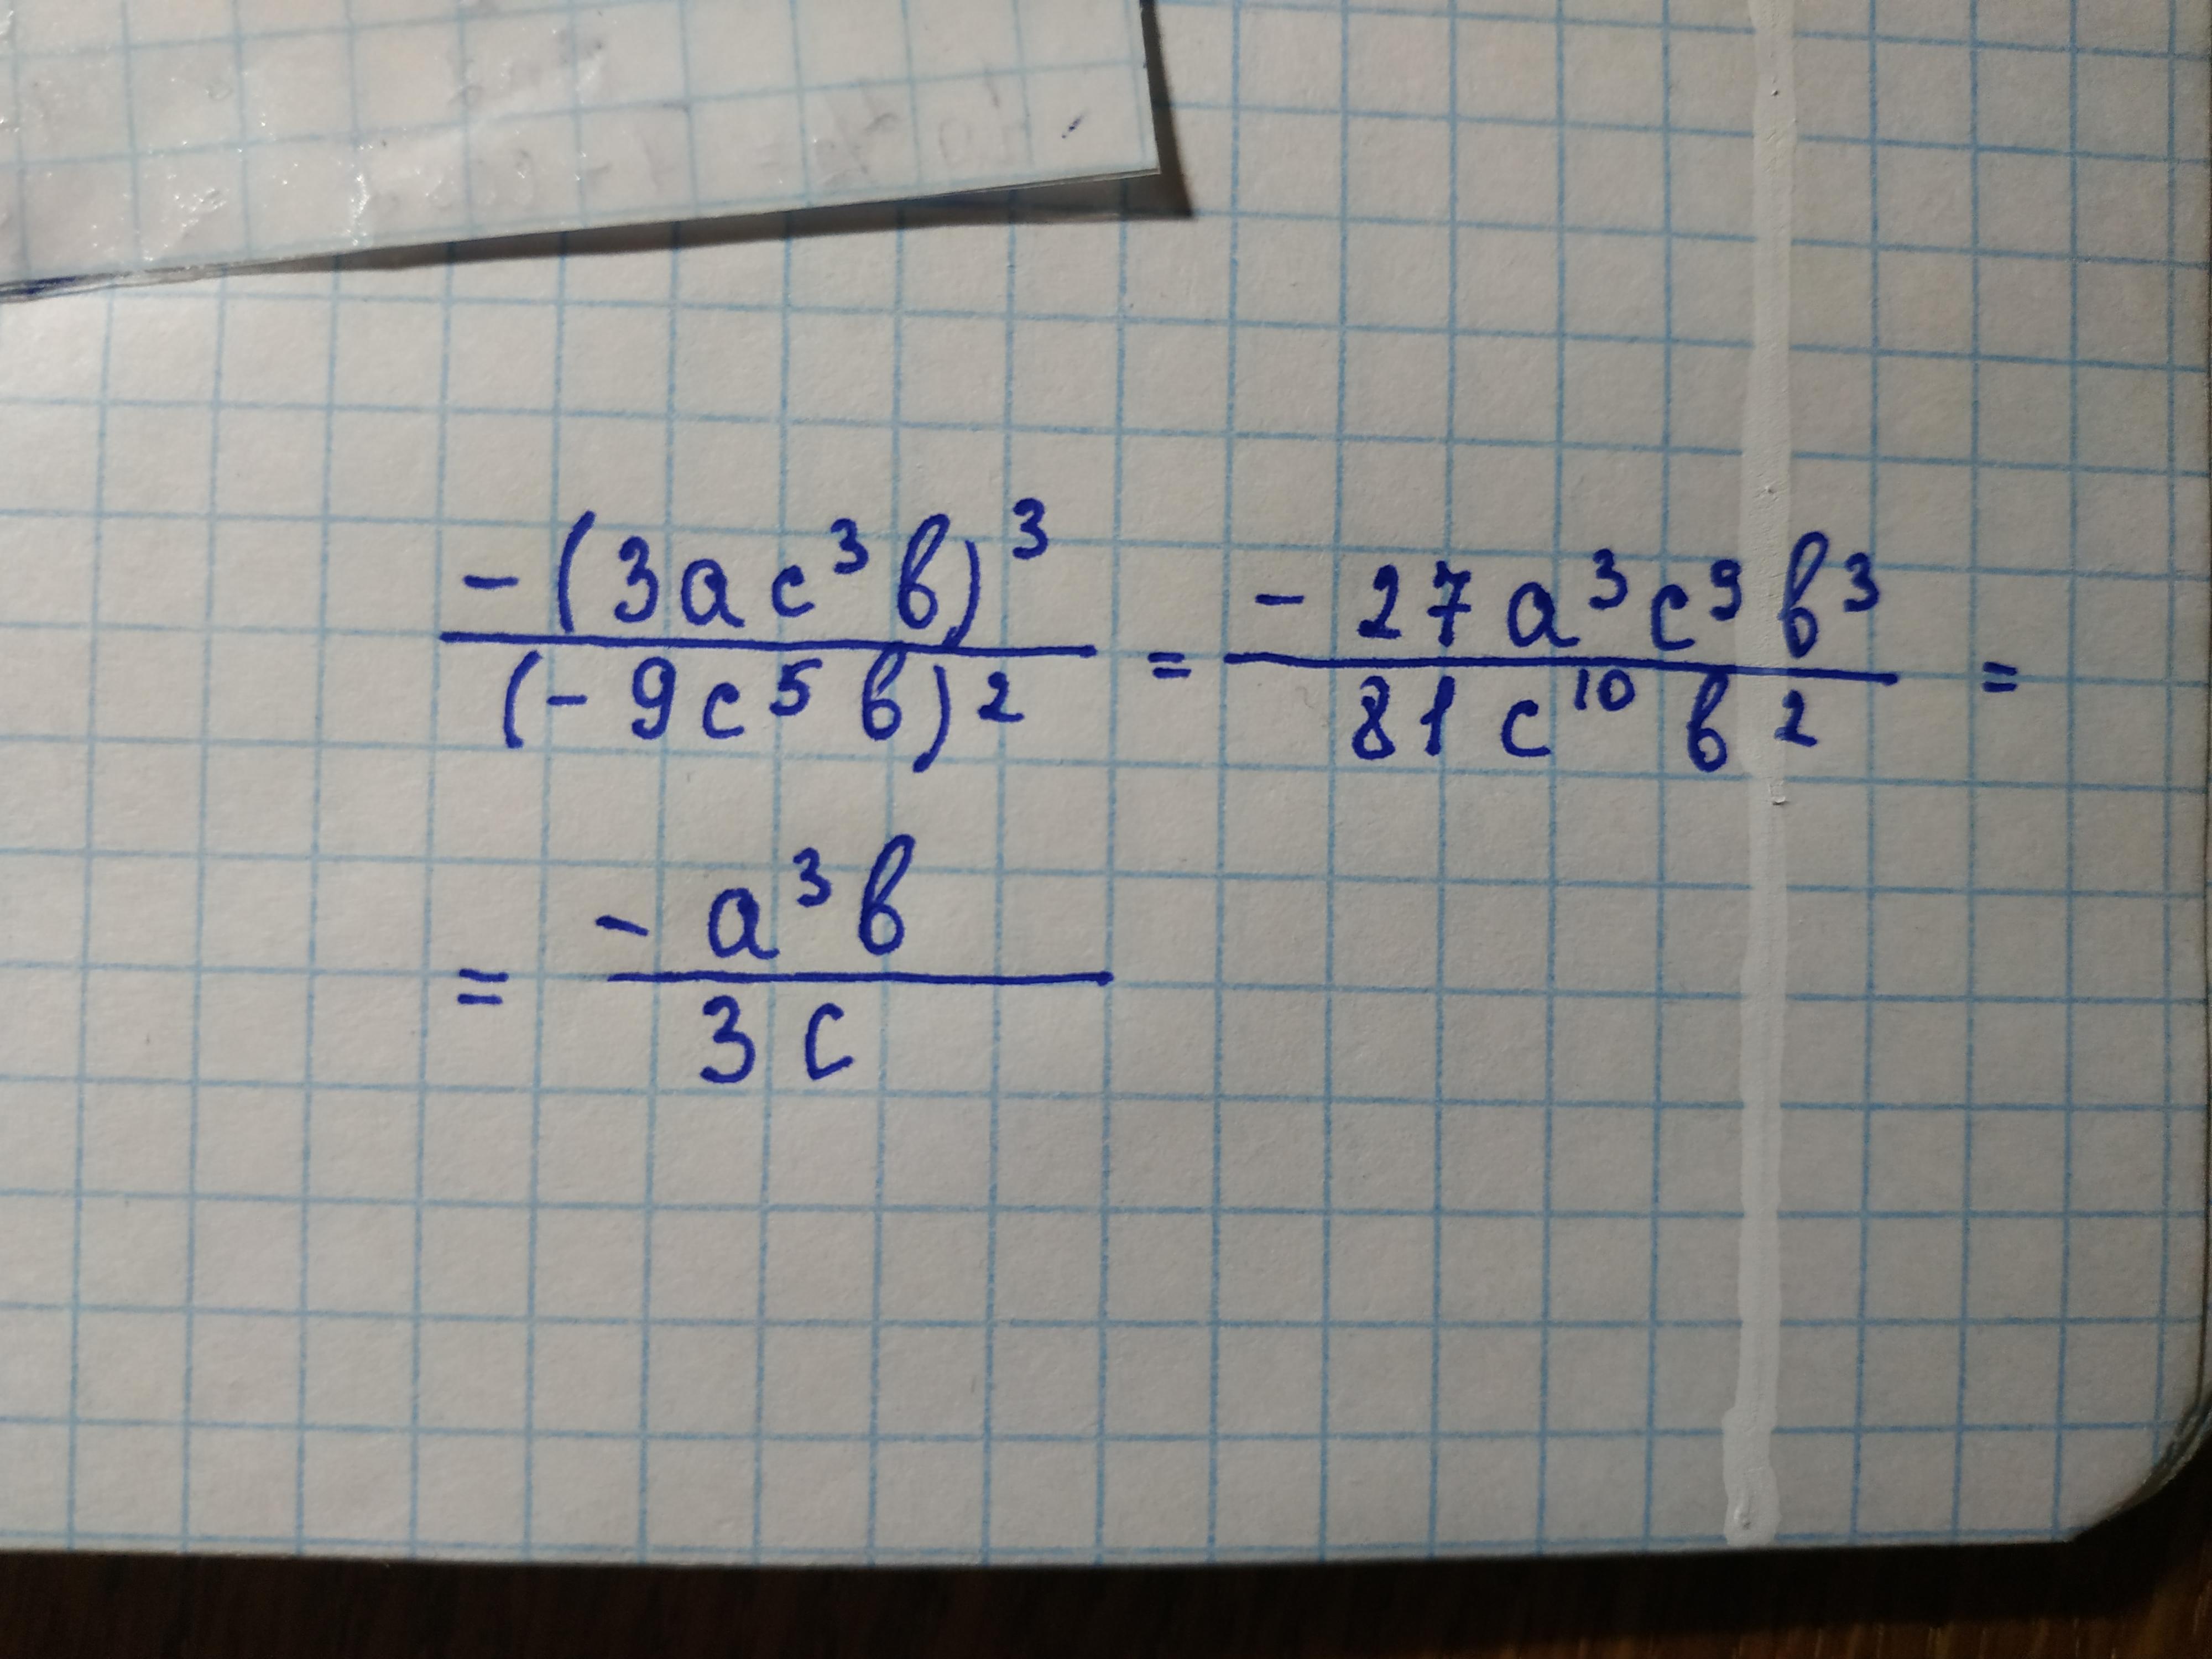 -(3ac³b)³/(-9c⁵b)² = -27a³c⁹b³/81c¹⁰b² =
= -a³b/3c